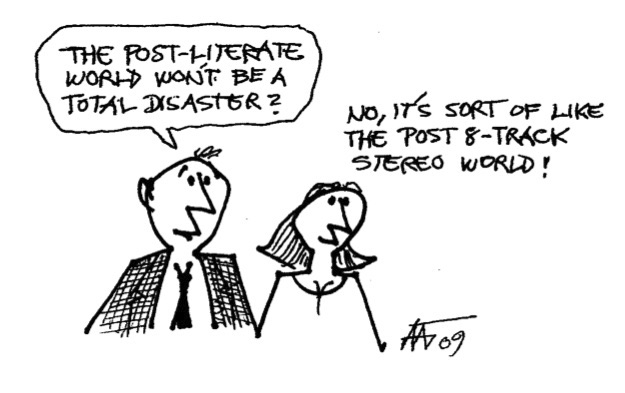 THE POST-LITERATE
WORLD WON'T BE A
TOTAL DISASTER?
NO, IT'S SORT OF LIKE
THE POST 8-TRACK
STEREO WORLD!
09